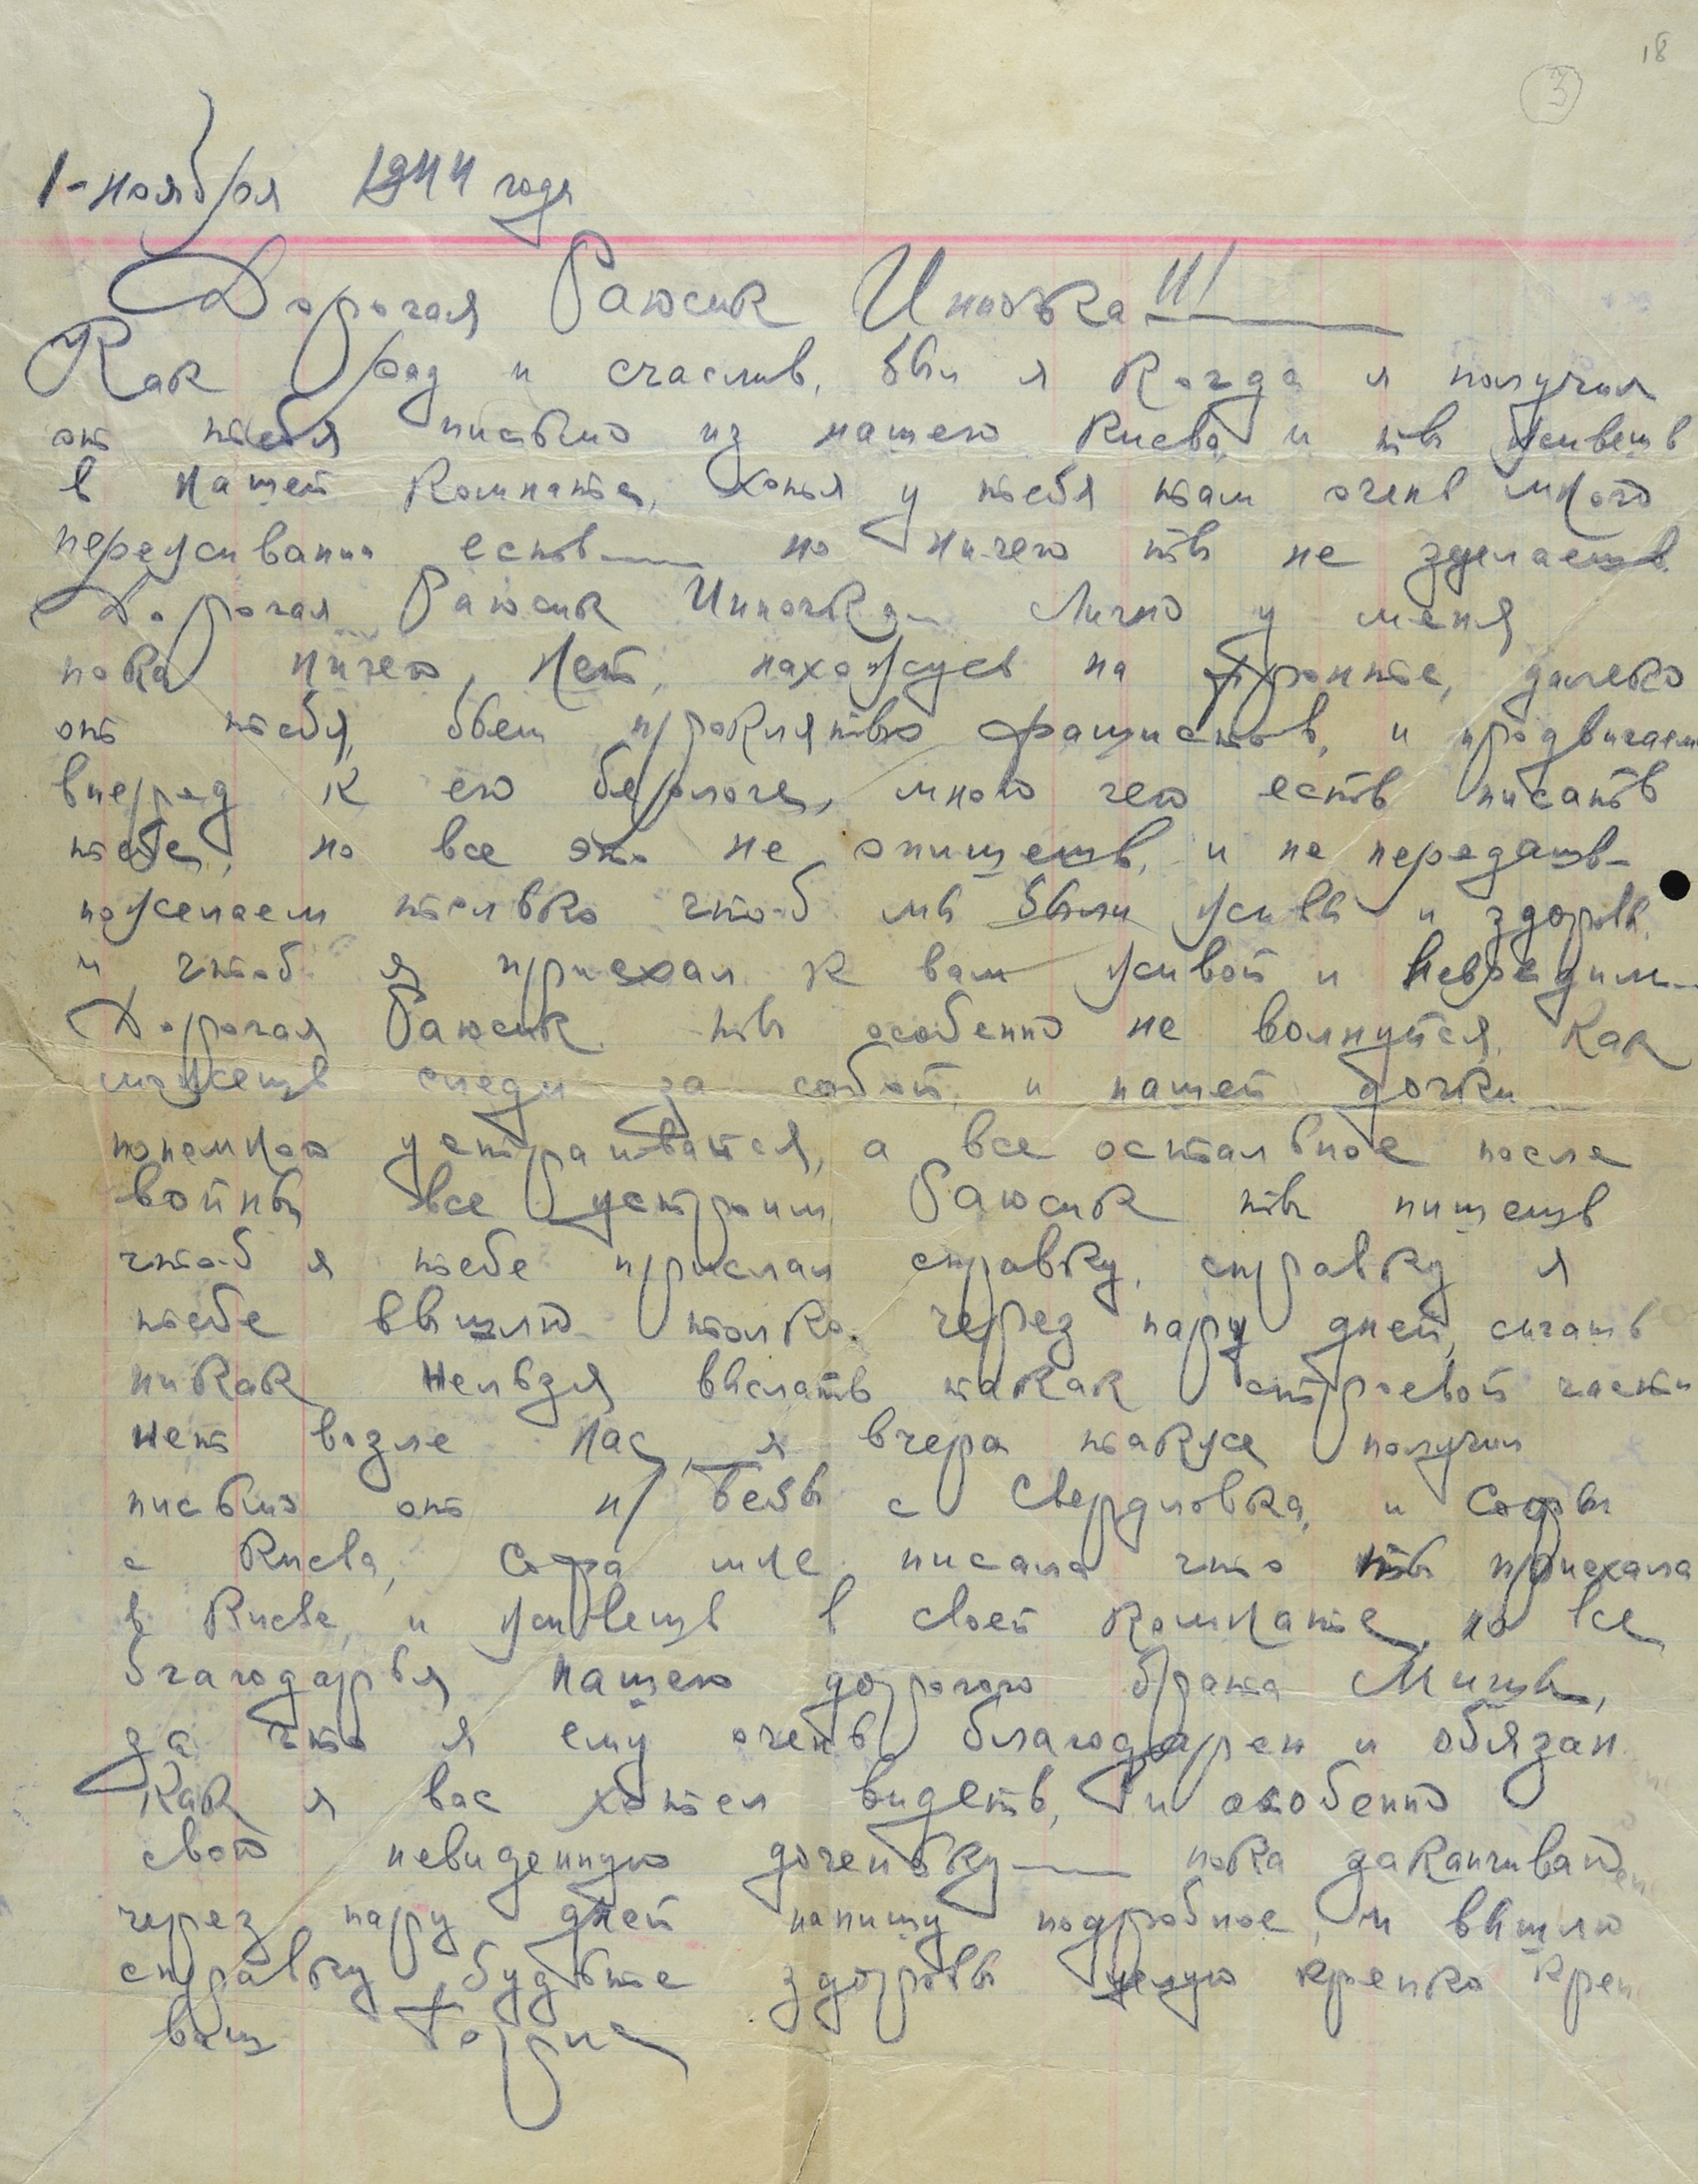 18
3
1-ноября 1944 года
Дорогая Раюсик Иночка!!!
Как рад и счаслив, был я когда я получил
от тебя письмо из нашего Киева и ты живешь
в нашей комната, хотя у тебя там очень много
переживании есть — но ничего ты не зделаешь.
Дорогая Раюсик Инночка — Лично у меня
пока ничего, нет, нахожусь на фронте, далеко
от тебя, бьем проклятых фашистов, и продвигаем
вперед к его берлоге, много чего есть писать
тебе, но все это не опишешь, и не передашь —
пожелаем только чтоб мы были живы и здоровы,
и чтоб я приехал к вам живой и невредим —
Дорогая Раюсик ты особенно не волнуйся, как
можешь следи за собой, и нашей дочки —
понемного устраивайся, а все остальное после
войны все устроим Раюсик ты пишешь
чтоб я тебе прислал справку, справку я
тебе вышлю только через пару дней,
никак нельзя выслать такак строевой части
нет возле нас, я вчера также получил
письмо от и/ Бебы с Свердловка, и Софы
с Киева, Софа мне писала что ты приехала
в Киеве, и живешь в своей комнате, но все
благодарья нашего дорогого брата Миши,
за что я ему очень благодарен и обязан
Как я вас хотел видеть, и особенно
свою невиденную доченьку — пока заканчиваю
через пару дней напишу подробное, и вышлю
справку, будьте здоровы целую крепко креп
ваш Борис